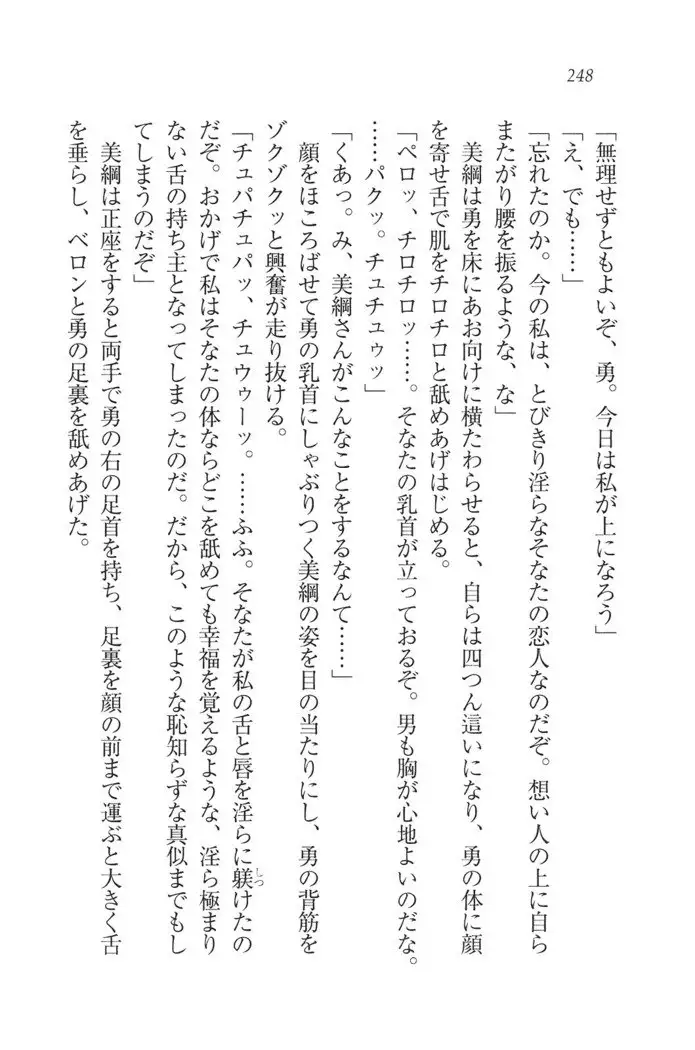 248
「無理せずともよいぞ、勇。今日は私が上になろう」
「え、でも……」
「忘れたのか。今の私は、とびきり淫らなそなたの恋人なのだぞ。想い人の上に自ら
またがり腰を振るような、な」
　美綱は勇を床にあお向けに横たわらせると、自らは四つん這いになり、勇の体に顔
を寄せ舌で肌をチロチロと舐めあげはじめる。
「ペロッ、チロチロッ……。そなたの乳首が立っておるぞ。男も胸が心地よいのだな。
……パクッ。チュチュゥッ」
「くあっ。み、美綱さんがこんなことをするなんて……」
　顔をほころばせて勇の乳首にしゃぶりつく美綱の姿を目の当たりにし、勇の背筋を
ゾクゾクッと興奮が走り抜ける。
「チュパチュパッ、チュウゥーッ。……ふふ。そなたが私の舌と唇を淫らに躾けたの
しつ
だぞ。おかげで私はそなたの体ならどこを舐めても幸福を覚えるような、淫ら極まり
ない舌の持ち主となってしまったのだ。だから、このような恥知らずな真似までもし
てしまうのだぞ」
　美綱は正座をすると両手で勇の右の足首を持ち、足裏を顔の前まで運ぶと大きく舌
を垂らし、ベロンと勇の足裏を舐めあげた。